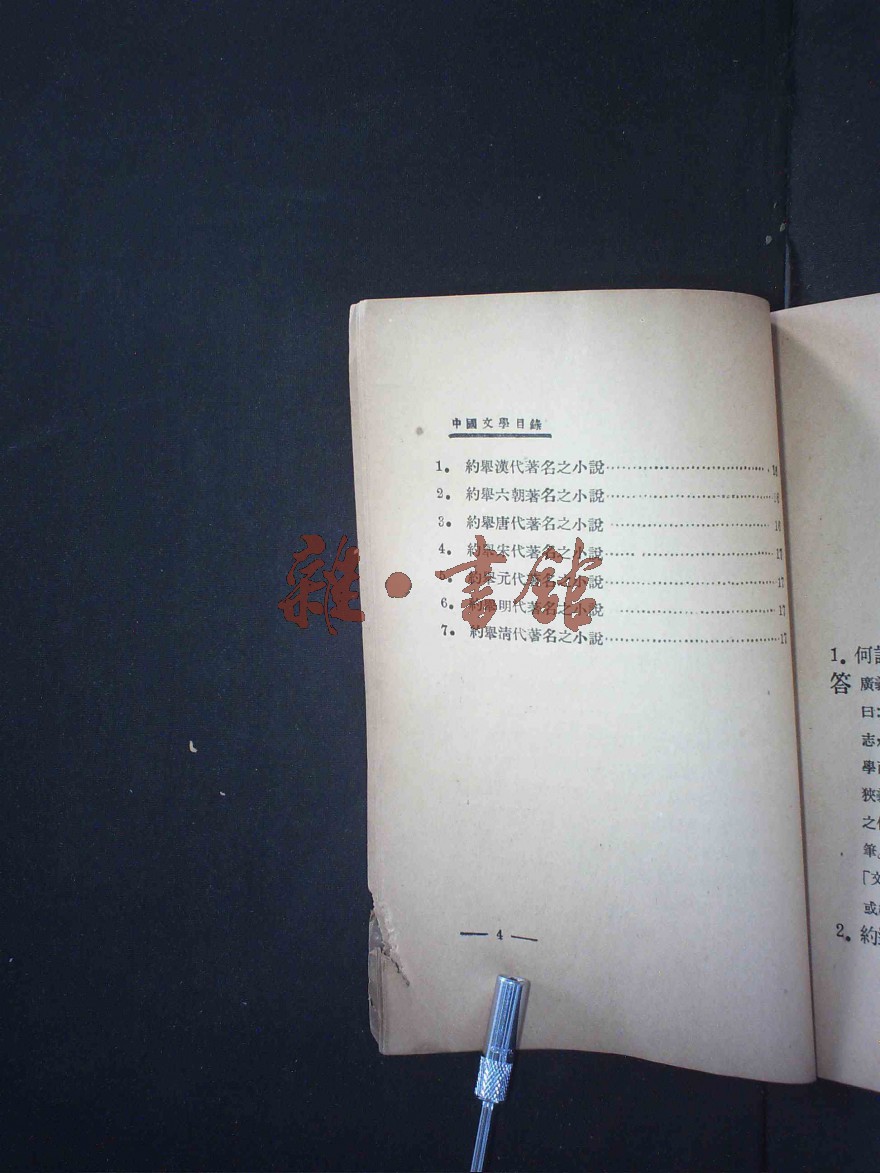 中國文學目錄
1. 約舉漢代著名之小說……16
2. 約舉六朝著名之小說……16
3. 約舉唐代著名之小說……16
4. 約舉宋代著名之小說……17
5. 約舉元代著名之小說……17
6. 約舉明代著名之小說……17
7. 約舉清代著名之小說……17
— 4 —
雜·書館
1. 何
答 廣
曰
志
學
狹
之
筆
「文
或
2. 約